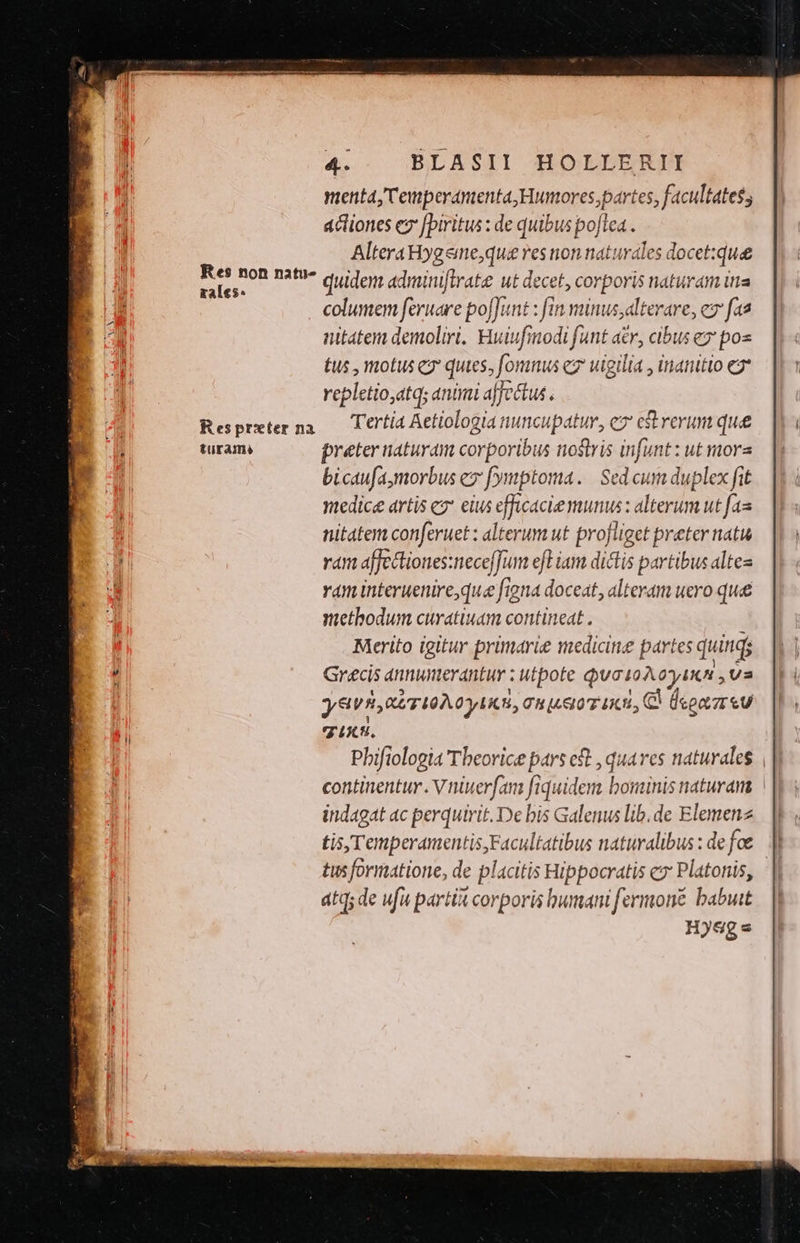 4. BLASII HOLLERII
menta,Temperamenta,Humores,partes, facultates,
actiones & ſpiritus: de quibus poſtea.
Altera Hygeine,quæ res non naturales docet:quæ
Res non natu-
rales.
quidem adminiſtratæ ut decet, corporis naturam in=
columem ſeruare poſſunt : ſin minus,alterare, & ſa=
nitatem demoliri. Huiuſmodi ſunt aër, cibus & po=
tus, motus & quies, ſomnus & uigilia, inanitio &
repletio,atq; animi affectus.
Res præter na
turam.
Tertia Aetiologia nuncupatur, & eſt rerum quæ
præter naturam corporibus noſtris inſunt : ut mor=
bi cauſa,morbus & ſymptoma. Sed cum duplex ſit
medicæ artis & eius efficaciæ munus : alterum ut ſa=
nitatem conſeruet : alterum ut profliget præter natu
ram affectiones:neceſſum eſt iam dictis partibus alte=
ram interuenire,quæ ſigna doceat, alteram uero quæ
methodum curatiuam contineat.
Merito igitur primariæ medicinæ partes quinq;
Græcis annumerantur : utpote φυσιολογικὴ, ὑ=
γεινὴ,αἰτιολογικὴ, σημειοτικὴ, καὶ θεραπευ
τικὴ.
Phiſiologia Theoricæ pars eſt, qua res naturales
continentur. Vniuerſam ſiquidem hominis naturam
indagat ac perquirit. De his Galenus lib. de Elemen=
tis,Temperamentis,Facultatibus naturalibus : de fœ
tus formatione, de placitis Hippocratis & Platonis,
atq; de uſu partiũ corporis humani ſermonẽ habuit
Hyeig=